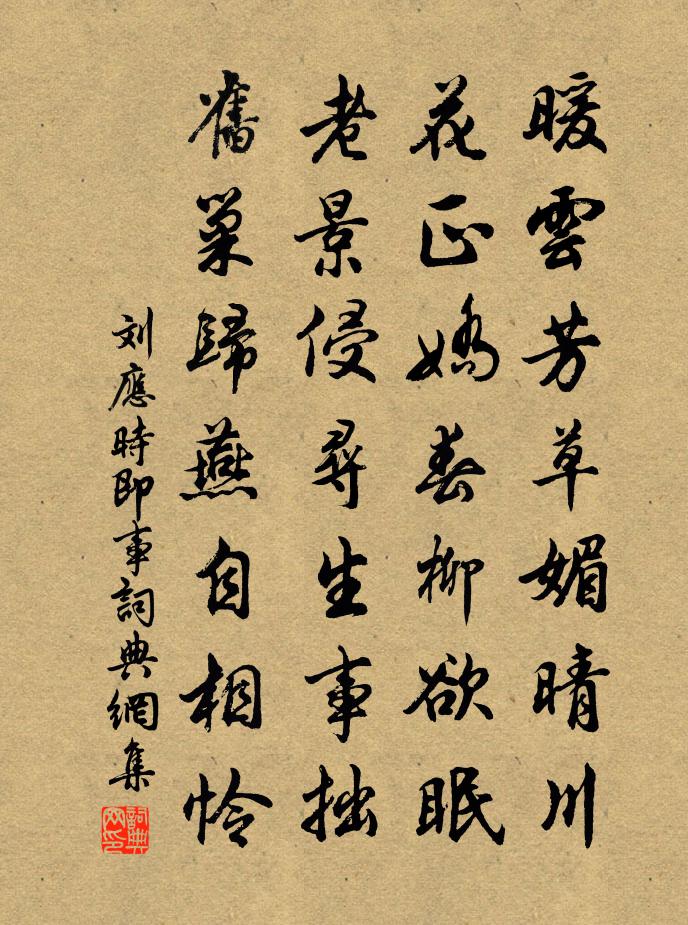 暖雲芳草媚晴川
花正嬌春柳欲眠
老景侵尋生事拙
舊巢歸燕自相怜
刘應時即事詞典網集
詞典网印